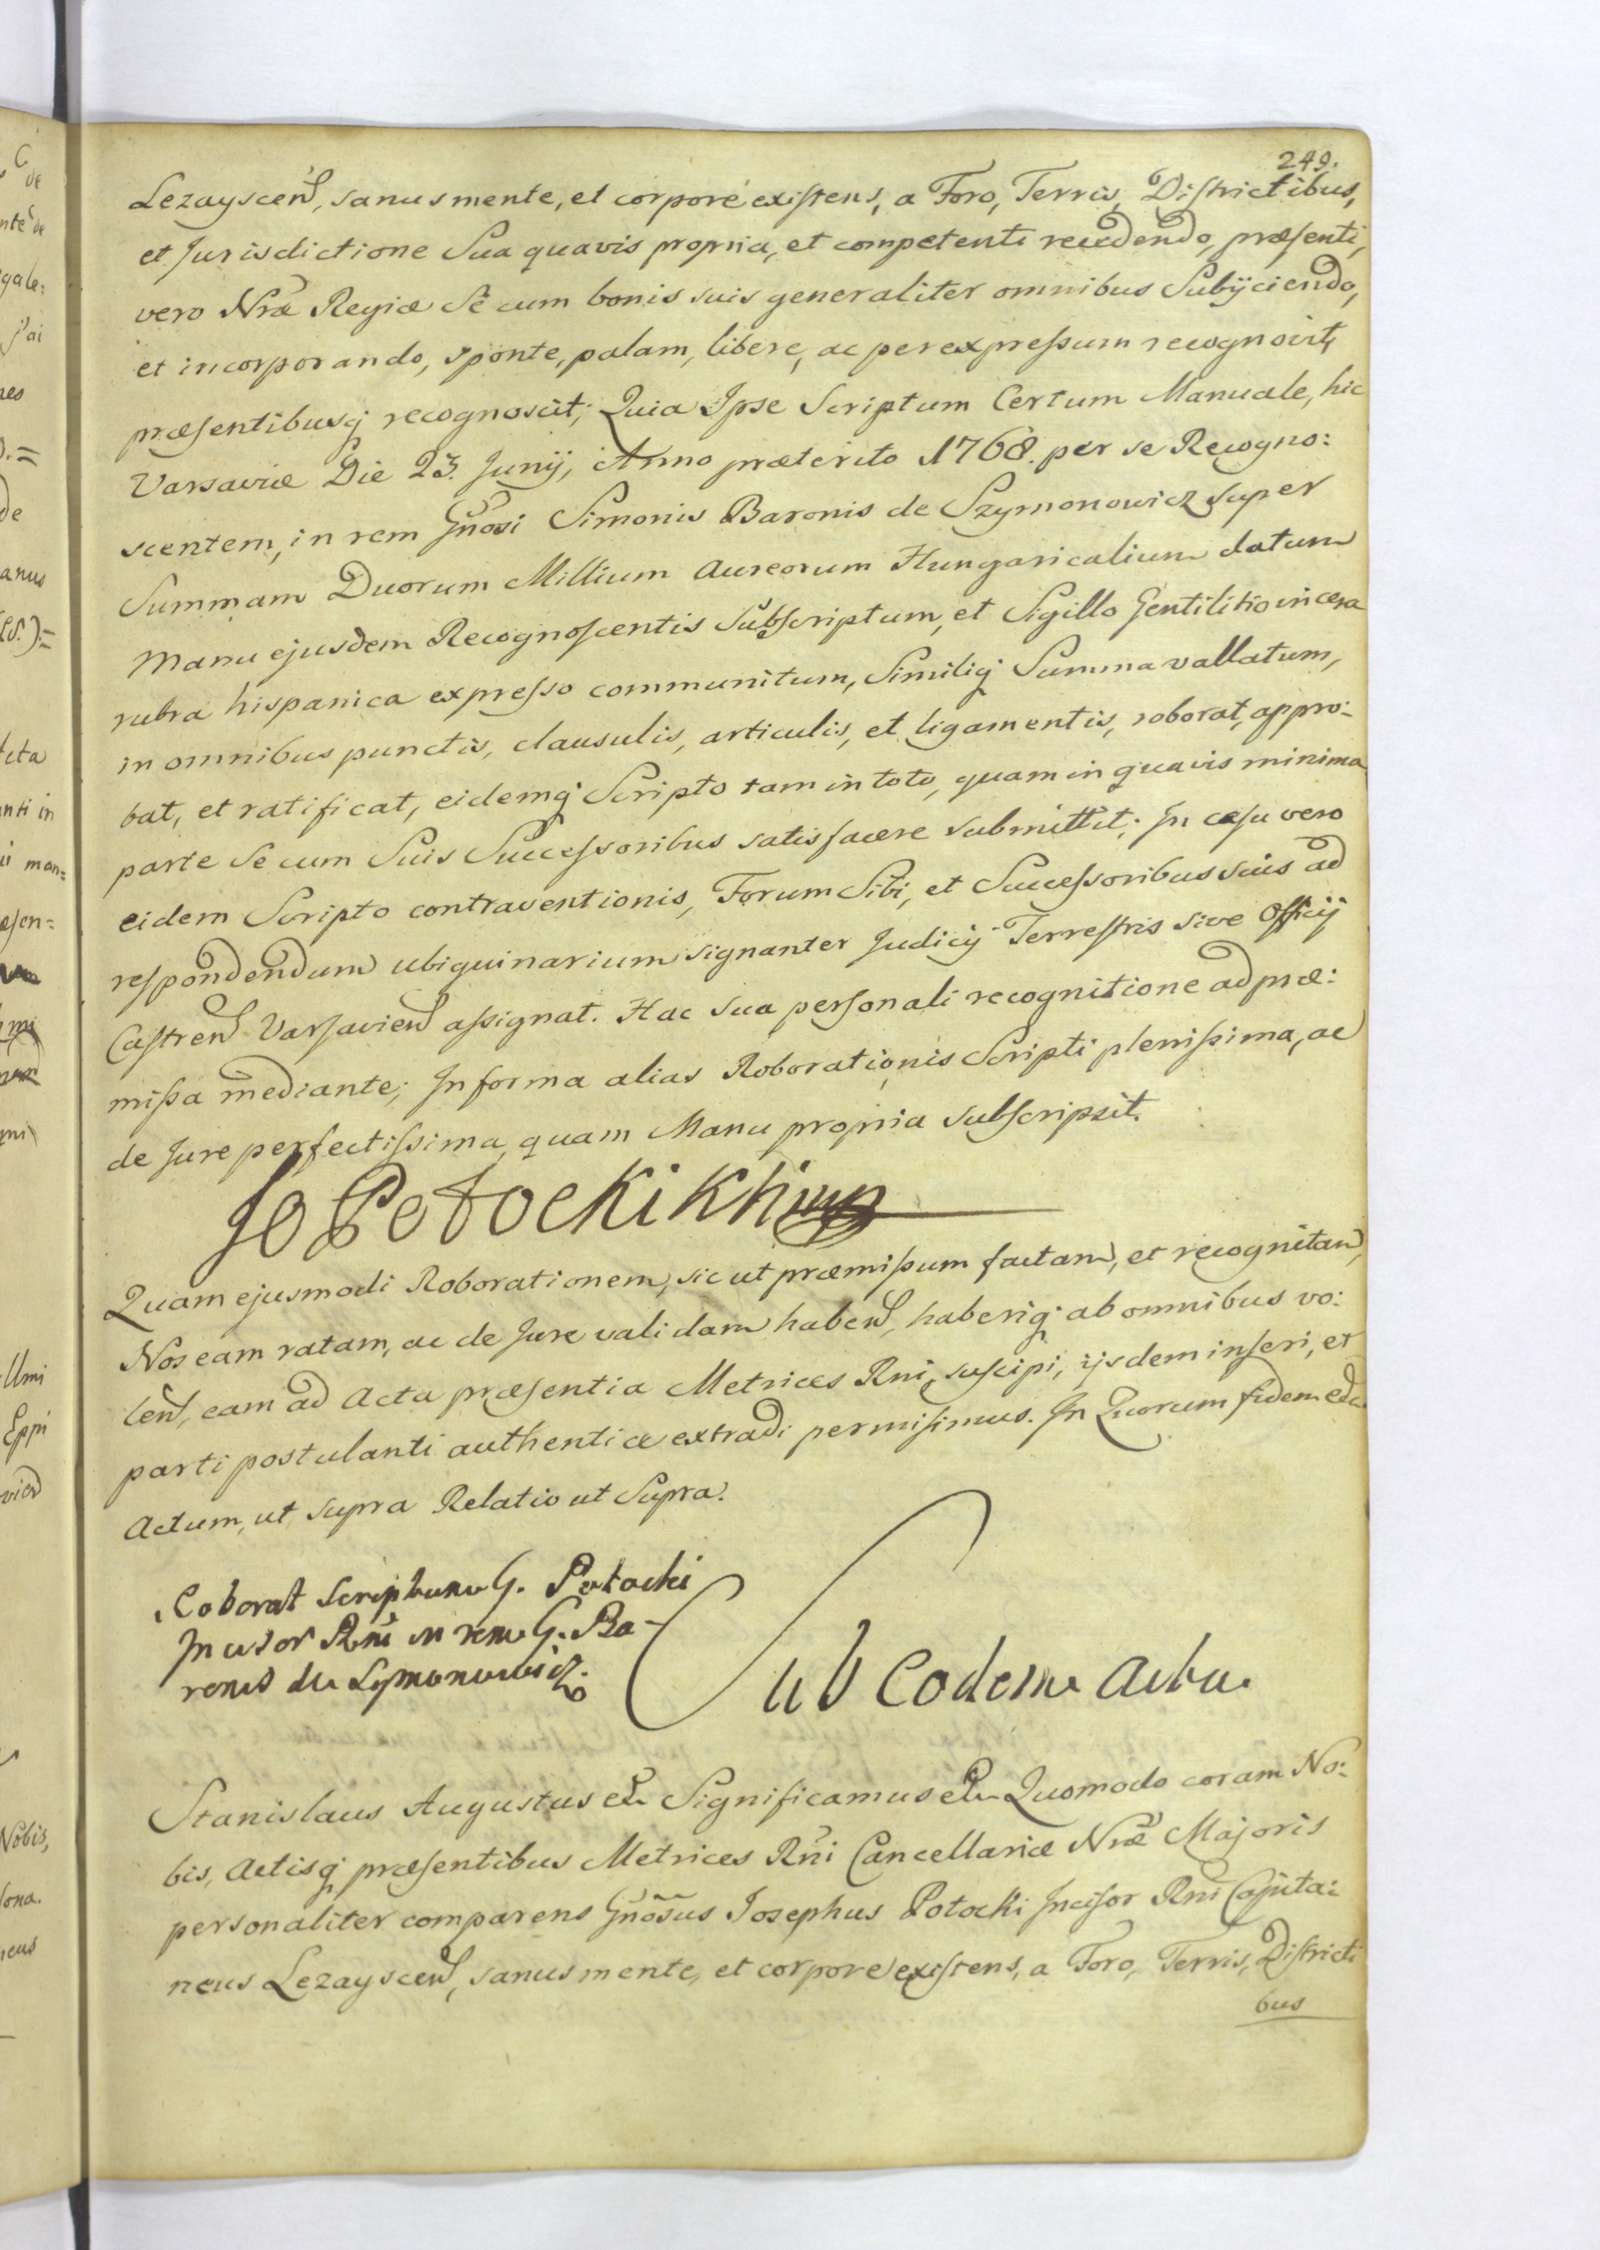 249.
Lezayscen̄, sanus mente, et corpore existens, a Foro, Terris, Districtibus,
et Jurisdictione Sua quavis propria, et competenti recedendo, præsenti,
vero Nræ Regiæ Se cum bonis suis generaliter omnibus Subijciendo,
et incorporando, sponte, palam, libere, ac per expressum recognovit,
præsentibusq recognoscit; Quia Ipse Scriptum Certum Manuale, hic
Varsaviæ Die 23. Junij, Anno præterito 1768. per se Recogno:
scentem, in rem Gnosi Simonis Baronis de Szymonowicz super
Summam Duorum Millium Aureorum Hungaricalium datum
Manu ejusdem Recognoscentis Subscriptum, et Sigillo Gentilitio in cera
rubra hispanica expresso communitum, Similiq Summa vallatum,
in omnibus punctis, clausulis, articulis, et ligamentis, roborat, appro:
bat, et ratificat, eidemq Scripto tam in toto, quam in quavis minima
parte Se cum Suis Successoribus satisfacere submittit; In casu vero
eidem Scripto contraventionis, Forum Sibi, et Successoribus suis ad
respondendum ubiquinarium signanter Judicij Terrestris sive Officij
Castren̄ Varsavien̄ assignat. Hac sua personali recognitione ad præ:
missa mediante; In forma alias Roborationis Scripti plenissima, ac
de Jure perfectissima, quam Manu propria subscripsit.
Jo Potocki
Quam ejusmodi Roborationem, sic ut præmissum factam, et recognitam,
Nos eam ratam, ac de Jure validam haben̄, haberiq ab omnibus vo:
len̄, eam ad Acta præsentia Metrices Rni, suscipi, ijsdem inseri, et
parti postulanti authentice extradi permisimus. In Quorum fidem etc
Actum, ut supra Relatio ut Supra.
Roborat Scriptum G. Potocki
Incisor Rni in rem G. Ba-
ronis de Symonowicz.
Sub Eodem Actu.
Stanislaus Augustus etc Significamus etc Quomodo coram No:
bis, Actisq præsentibus Metrices Rni Cancellariæ Nræ Majoris
personaliter comparens Gnosus Josephus Potocki Incisor Rni Capita:
neus Lezayscen̄, sanus mente, et corpore existens, a Foro, Terris, Districti
bus